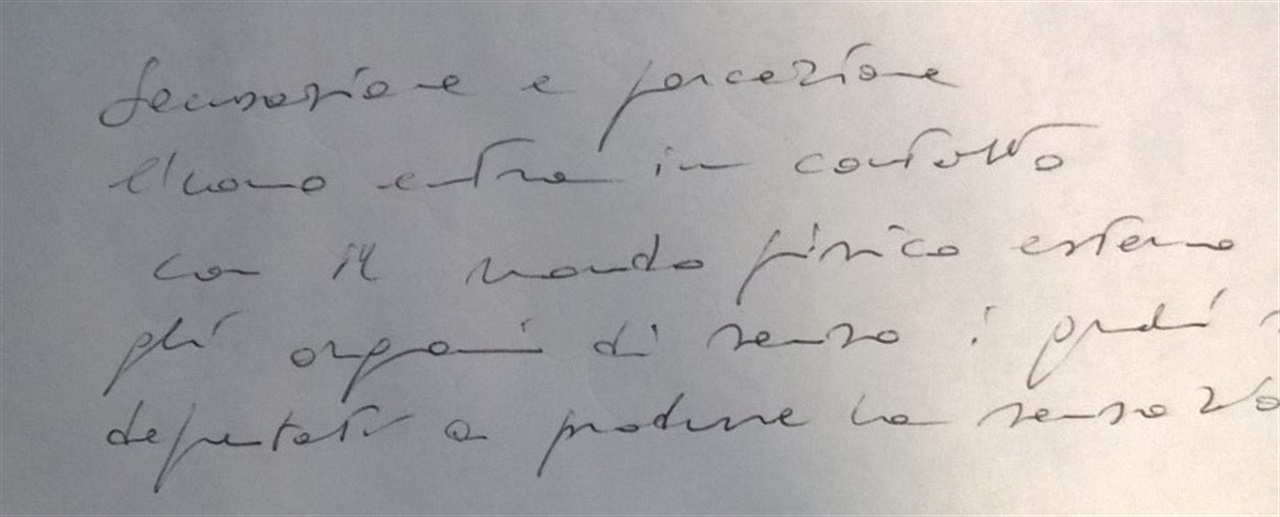 Sensazione e percezione
l'uomo entra in contatto
con il mondo fisico esterno
gli organi di senso i quali
deputati a produrre la sensazio